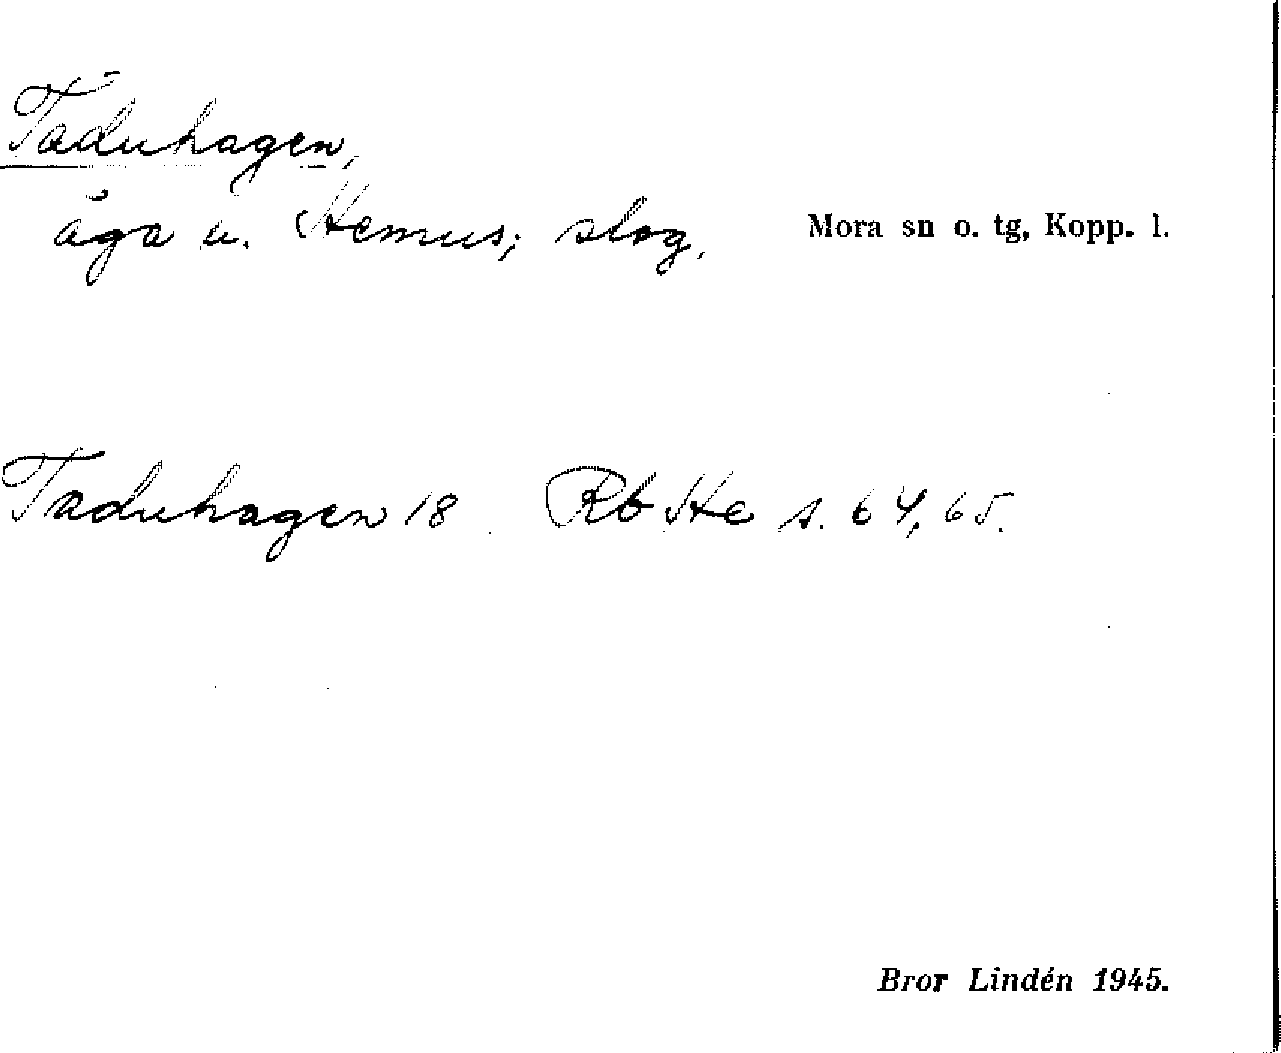 Taduhagen,
äga u. Hemus; slog. Mora sn o. tg, Kopp. l.
Taduhagen 18 Rb He s. 64, 65.
Bror Lindén 1945.